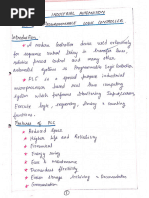 INDUSTRIAL AUTOMATION
PROGRAMMABLE LOGIC CONTROLLER
Introduction
A modern Controller device used extensively
for sequence control today in
control and many other
Automation system is Programmable Logic Controller.
* PLC is a special purpose industrial
microprocessor based real time computing
system which performs Monitoring Supervisory
Execute logic, sequencing, timing & counting
functions.
Features of PLC
* Reduced Space
* Higher Life and Reliability
* Economical
* Energy Saving
* Ease of Maintenance
* Tremendous flexibility
* Project Documentation
* Communication
①